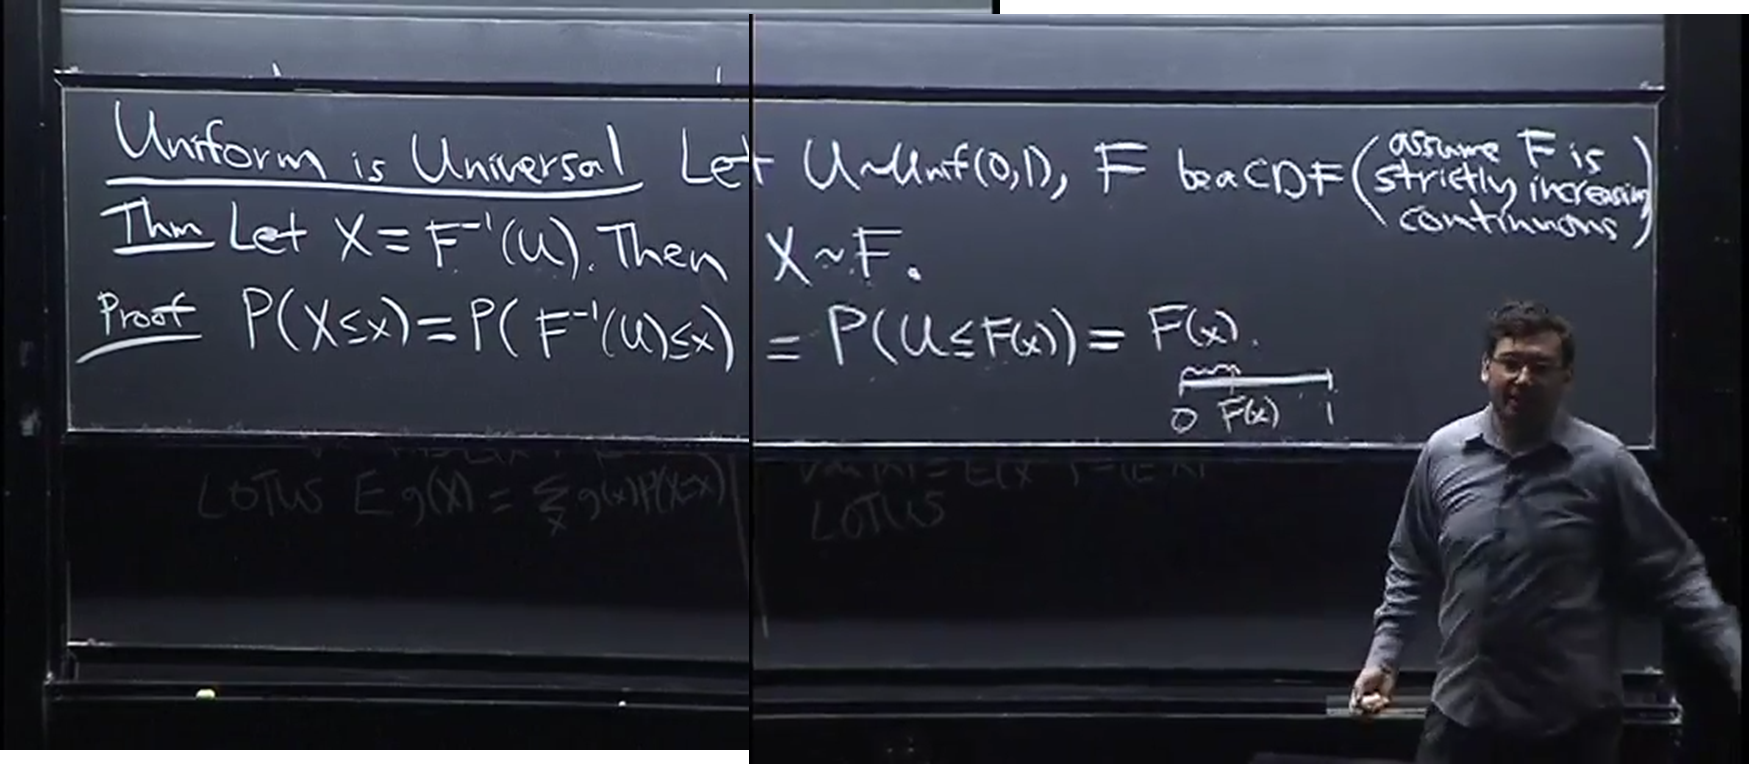 Uniform is Universal Let U~Unif(0,1), F be a CDF (assume F is strictly increasing, continuous)
Thm Let X = F⁻¹(U). Then X ~ F.
Proof P(X≤x) = P(F⁻¹(U)≤x) = P(U≤F(x)) = F(x).
0 F(x) 1
LOTUS E g(X) = Σₓ g(x)P(X=x) LOTUS